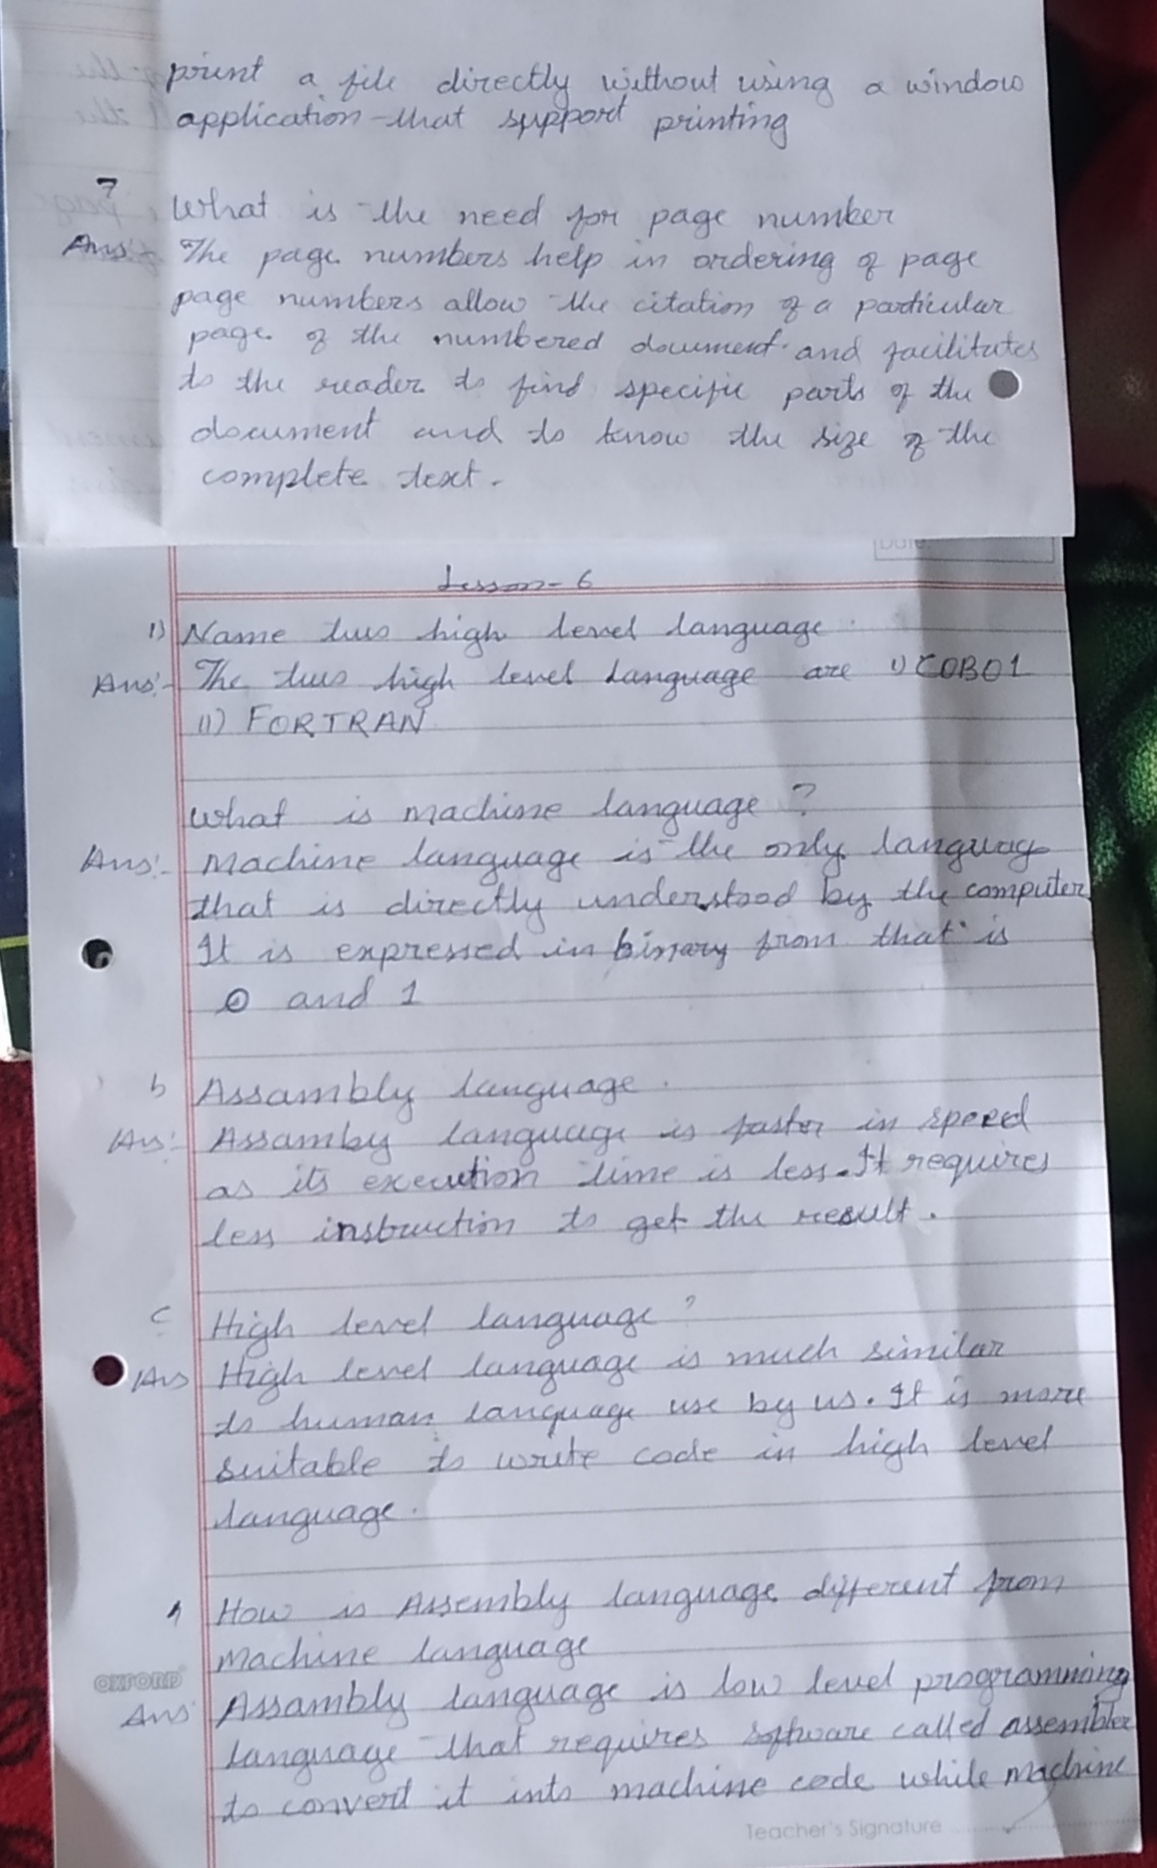 print a file directly without using a window
application that support printing
7 What is the need for page number
Ans:- The page numbers help in ordering of page
page numbers allow the citation of a particular
page of the numbered document and facilitates
to the reader to find specific parts of the
document and to know the size of the
complete text.
Date
Lesson-6
1) Name two high level language
Ans:- The two high level language are 1) COBOL
11) FORTRAN
What is machine language ?
Ans:- Machine language is the only language
that is directly understood by the computer
It is expressed in binary from that is
0 and 1
b Assambly language.
Ans:- Assamby language is faster in speed
as its execution time is less. It requires
less instruction to get the result.
c High level language?
Ans High level language is much similar
to human language use by us. It is more
suitable to write code in high level
language.
4 How is Assembly language different from
machine language
OXFORD
Ans Assambly language is low level programming
language that requires software called assembler
to convert it into machine code while machine
Teacher's Signature